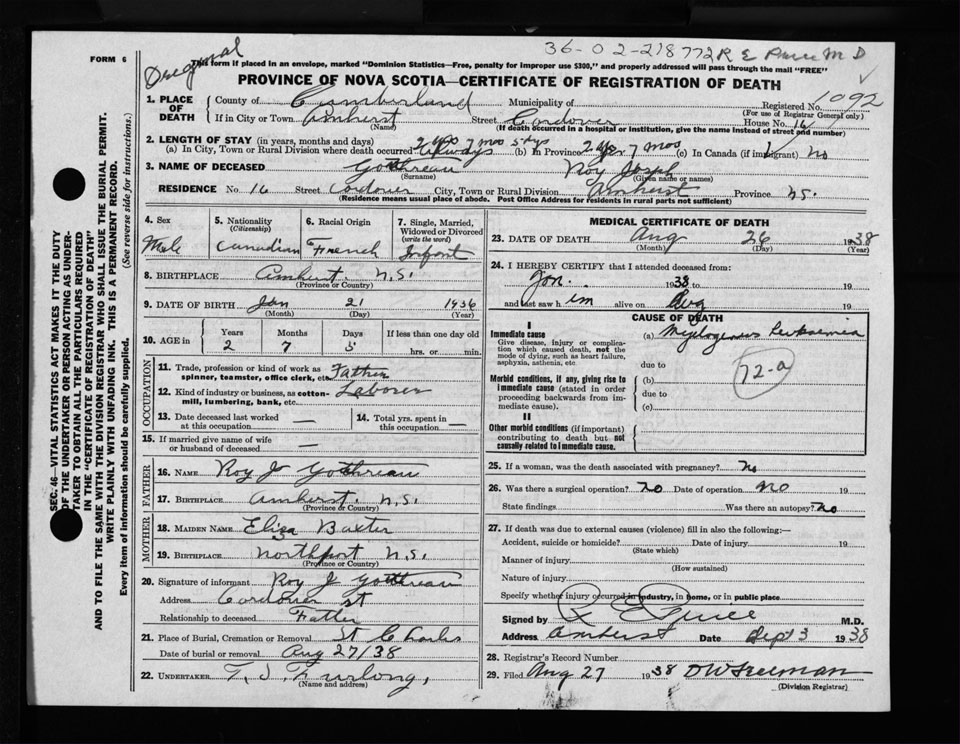 36-02-218772 R E Price M D
Original
FORM 6
This form if placed in an envelope, marked "Dominion Statistics—Free, penalty for improper use $300," and properly addressed will pass through the mail "FREE"
PROVINCE OF NOVA SCOTIA—CERTIFICATE OF REGISTRATION OF DEATH
SEC. 46—VITAL STATISTICS ACT MAKES IT THE DUTY
OF THE UNDERTAKER OR PERSON ACTING AS UNDER-
TAKER TO OBTAIN ALL THE PARTICULARS REQUIRED
IN THE "CERTIFICATE OF REGISTRATION OF DEATH"
AND TO FILE THE SAME WITH THE DIVISION REGISTRAR WHO SHALL ISSUE THE BURIAL PERMIT.
WRITE PLAINLY WITH UNFADING INK. THIS IS A PERMANENT RECORD.
Every item of information should be carefully supplied. (See reverse side for instructions.)
1. PLACE OF DEATH
County of Cumberland Municipality of Registered No. 1092
(For use of Registrar General only)
If in City or Town Amherst Street Cordover House No. 16
(Name) (If death occurred in a hospital or institution, give the name instead of street and number)
2. LENGTH OF STAY (in years, months and days)
(a) In City, Town or Rural Division where death occurred 2 yrs 7 mos 5 dys (b) In Province 2 yrs 7 mos (c) In Canada (if immigrant) no
3. NAME OF DECEASED Gotthreau Roy Joseph
(Surname) (Given name or names)
RESIDENCE No. 16 Street Cordover City, Town or Rural Division Amherst Province N.S.
(Residence means usual place of abode. Post Office Address for residents in rural parts not sufficient)
4. Sex Male
5. Nationality (Citizenship) Canadian
6. Racial Origin French
7. Single, Married, Widowed or Divorced (write the word) Infant
8. BIRTHPLACE Amherst N.S.
(Province or Country)
9. DATE OF BIRTH Jan 21 1936
(Month) (Day) (Year)
10. AGE in Years 2 Months 7 Days 5 If less than one day old hrs. or min.
OCCUPATION
11. Trade, profession or kind of work as spinner, teamster, office clerk, etc. Father
12. Kind of industry or business, as cotton-mill, lumbering, bank, etc. Laborer
13. Date deceased last worked at this occupation —
14. Total yrs. spent in this occupation —
15. If married give name of wife or husband of deceased —
FATHER
16. NAME Roy J Gotthreau
17. BIRTHPLACE Amherst N.S.
(Province or Country)
MOTHER
18. MAIDEN NAME Eliza Baxter
19. BIRTHPLACE Northport N.S.
(Province or Country)
20. Signature of informant Roy J Gotthreau
Address Cordover St
Relationship to deceased Father
21. Place of Burial, Cremation or Removal St Charles
Date of burial or removal Aug 27/38
22. UNDERTAKER T. J. Furlong,
(Name and address)
MEDICAL CERTIFICATE OF DEATH
23. DATE OF DEATH Aug 26 1938
(Month) (Day) (Year)
24. I HEREBY CERTIFY that I attended deceased from:
Jan. 1938 to 19
and last saw him alive on Aug 19
CAUSE OF DEATH
I
Immediate cause (a) Myelogenous Leukaemia
Give disease, injury or complication which caused death, not the mode of dying, such as heart failure, asphyxia, asthenia, etc.
due to
72-a
Morbid conditions, if any, giving rise to immediate cause (stated in order proceeding backwards from immediate cause).
(b)
due to
(c)
II
Other morbid conditions (if important) contributing to death but not causally related to immediate cause.
25. If a woman, was the death associated with pregnancy? no
26. Was there a surgical operation? no Date of operation no 19
State findings Was there an autopsy? no
27. If death was due to external causes (violence) fill in also the following:—
Accident, suicide or homicide? Date of injury 19
(State which)
Manner of injury
(How sustained)
Nature of injury
Specify whether injury occurred in industry, in home, or in public place
Signed by R E Price M.D.
Address Amherst Date Sept 3 1938
28. Registrar's Record Number
29. Filed Aug 27 1938 D W Freeman
(Division Registrar)